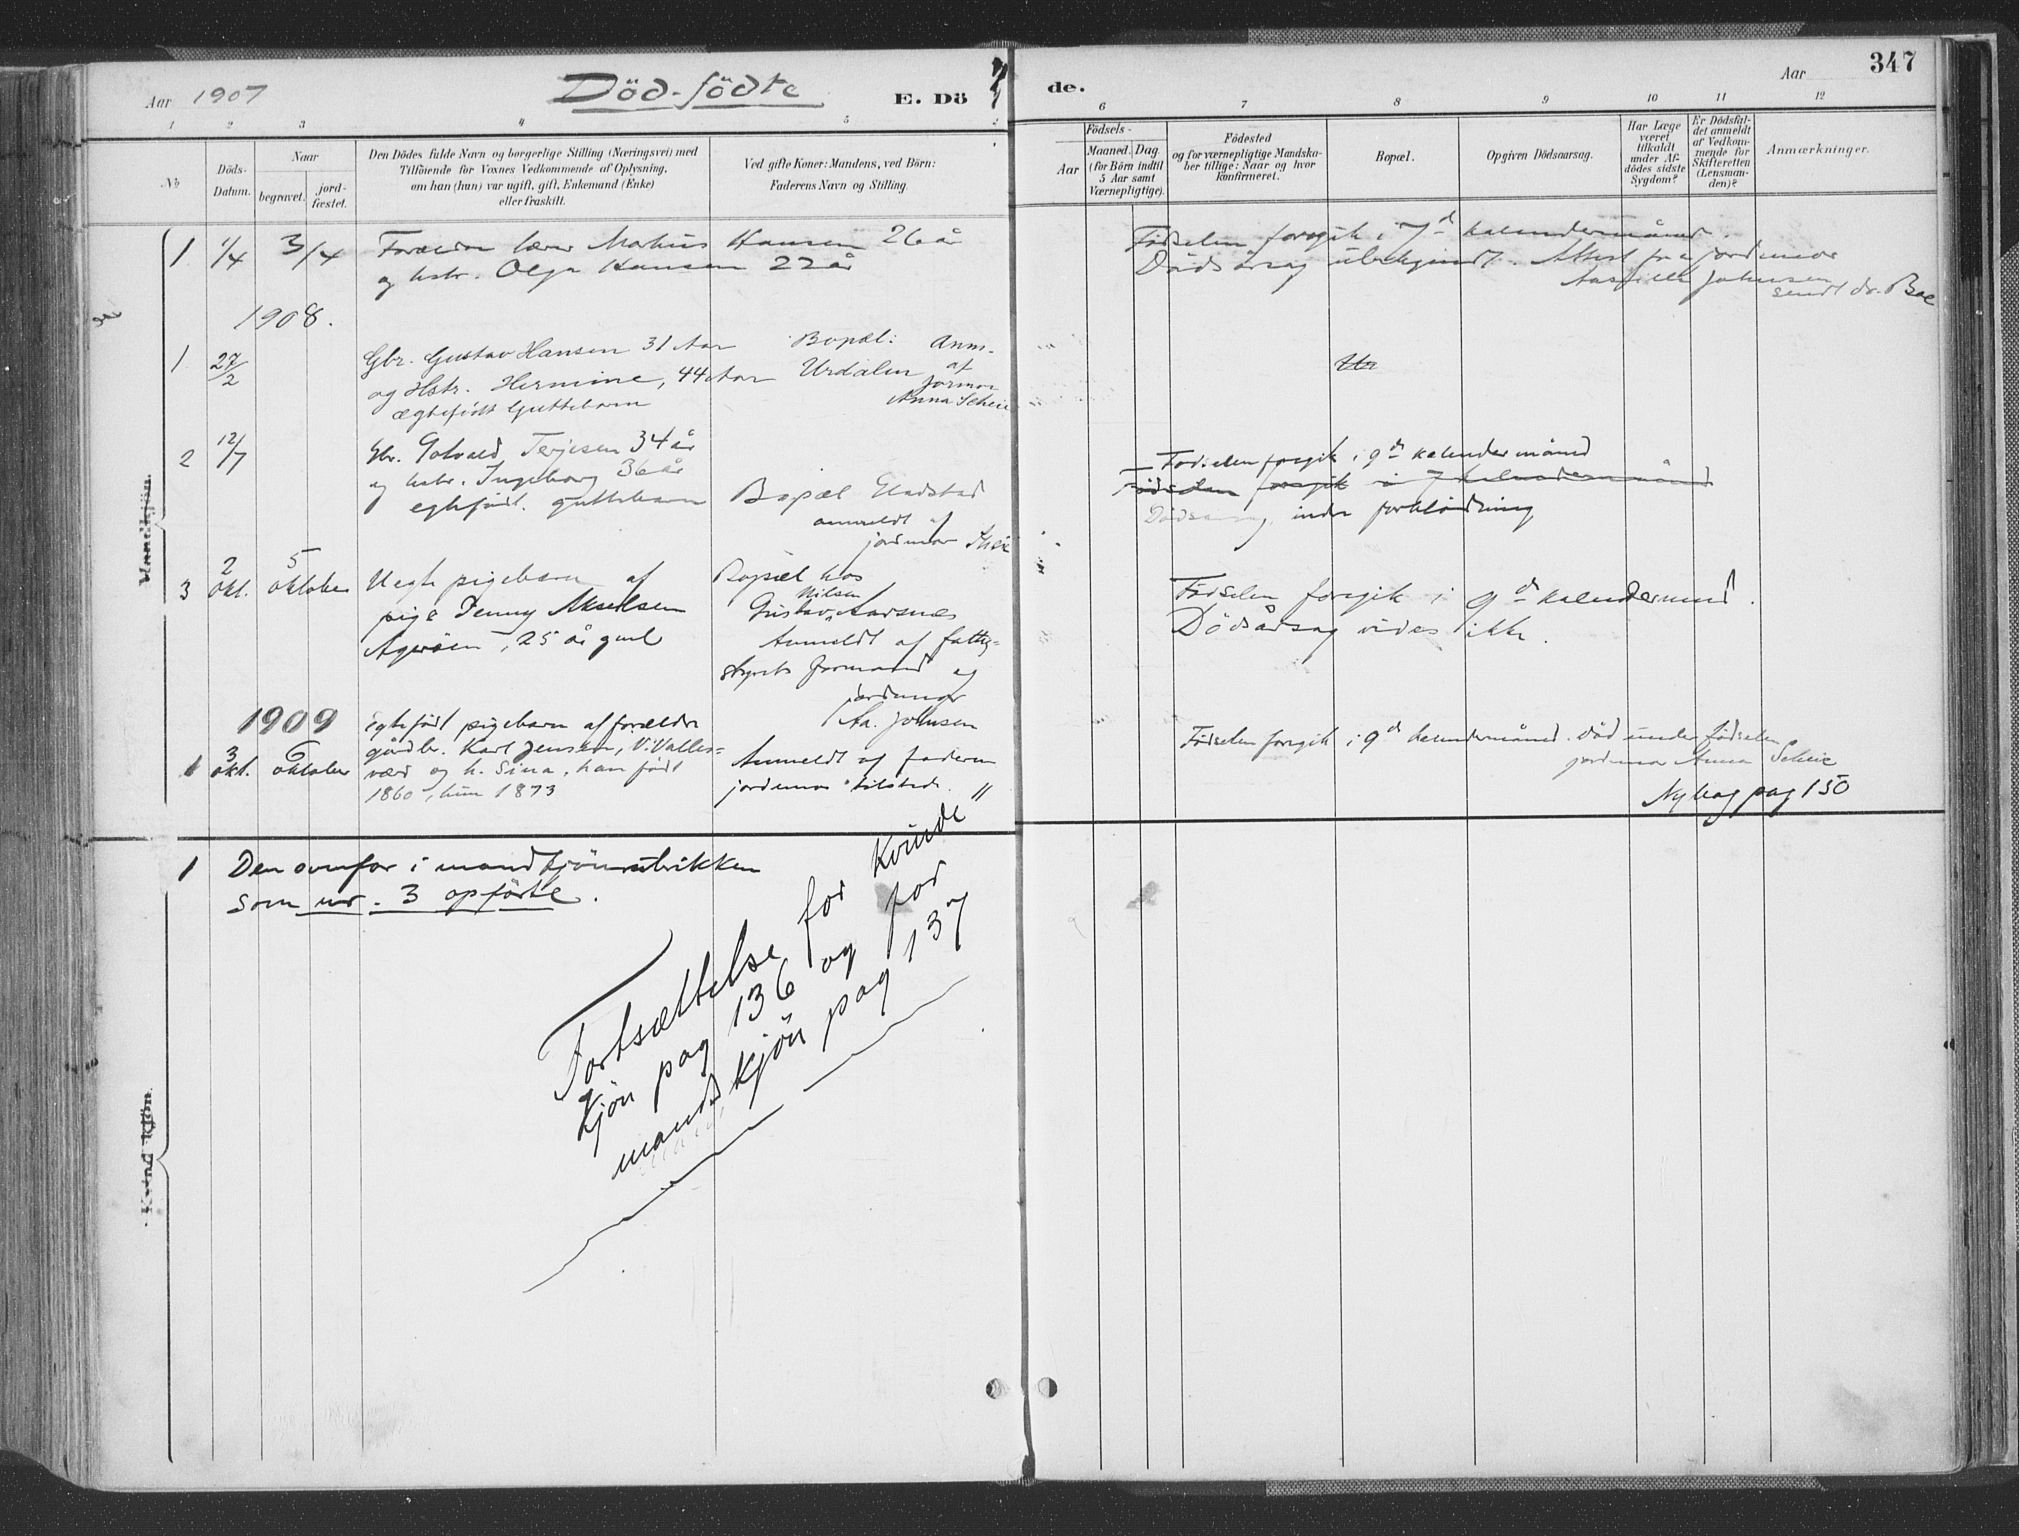 Aar 1907
Död-födte
E. Dö
de.
Aar
347
1 2 3 4 5 6 7 8 9 10 11 12
No
Döds-
Datum.
Naar
begravet.
jord-
fæstet.
Den Dödes fulde Navn og borgerlige Stilling (Næringsvei) med
Tilföiende för Voxnes Vedkommende af Oplysning,
om han (hun) var ugift, gift, Enkemand (Enke)
eller fraskilt.
Ved gifte Koner: Mandens, ved Börn:
Faderens Navn og Stilling.
Födsels-
Aar
Maaned. Dag.
(for Börn indtil
5 Aar samt
Værnepligtige).
Födested
og for værnepligtige Mandska-
ber tillige: Naar og hvor
konfirmeret.
Bopæl.
Opgiven Dödsaarsag.
Har Læge
været
tilkaldt
under Af-
dödes sidste
Sygdom?
Er Dödsfal-
det anmeldt
af Vedkom-
mende for
Skifteretten
(Lensman-
den)?
Anmærkninger.
Mandkjön.
1 1/4 3/4 Forældre lærer Mohus Hansen 26 år
og hstr. Olga Hansen 22 år
Födselen foregik i 7d kalendermåned.
Dödsårsag ubekjendt. Attest fra jordmor
Johnsen
sendt dr. Boe
1908.
1 27/2 Gbr. Gustav Hansen 31 Aar Bopæl: Anm.
og Hstr. Hermine, 44 Aar Urdalen af
jormor
ægtefödt Guttebarn Anna Scheie
2 12/7 Gbr. Gotvald Terjesen 34 år
og hstr. Ingeborg 36 år
egtefödt guttebarn Bopæl Gladstad
anmeldt af
jordmor Scheie
Födselen foregik i 9de kalendermåned
Födselen foregik i 7 kalendermåned
Dödsårsag indre forblödning
3 2 okt. 5 oktober Uegte pigebarn af
pige Jenny Akselsen
Ageröen, 25 år gml
Bopæl hos
Nilsen
Gustav Aarsnes
Anmeldt af fattig-
styrets formand og
jordmor
Aa. Johnsen
Födselen foregik i 9de kalendermnd.
Dödsårsag vides ikke.
1909
1 3 okt. 6 oktober egtefödt pigebarn af forældre
gårdbr. Karl Jensen, V. Valles-
værd og h. Sina, han född
1860, hun 1873
Anmeldt af faderen
jordemor tilstede. "
Födselen foregik i 9de kalendermåned. död under födselen
jordmor Anna Scheie
Ny bog pag 150
Kvindkjön.
1 Den ovenfor i mandkjönsrubrikken
som nr. 3 opförte.
Fortsættelse for Kvinde
kjön pag 136 og for
mandkjön pag 137